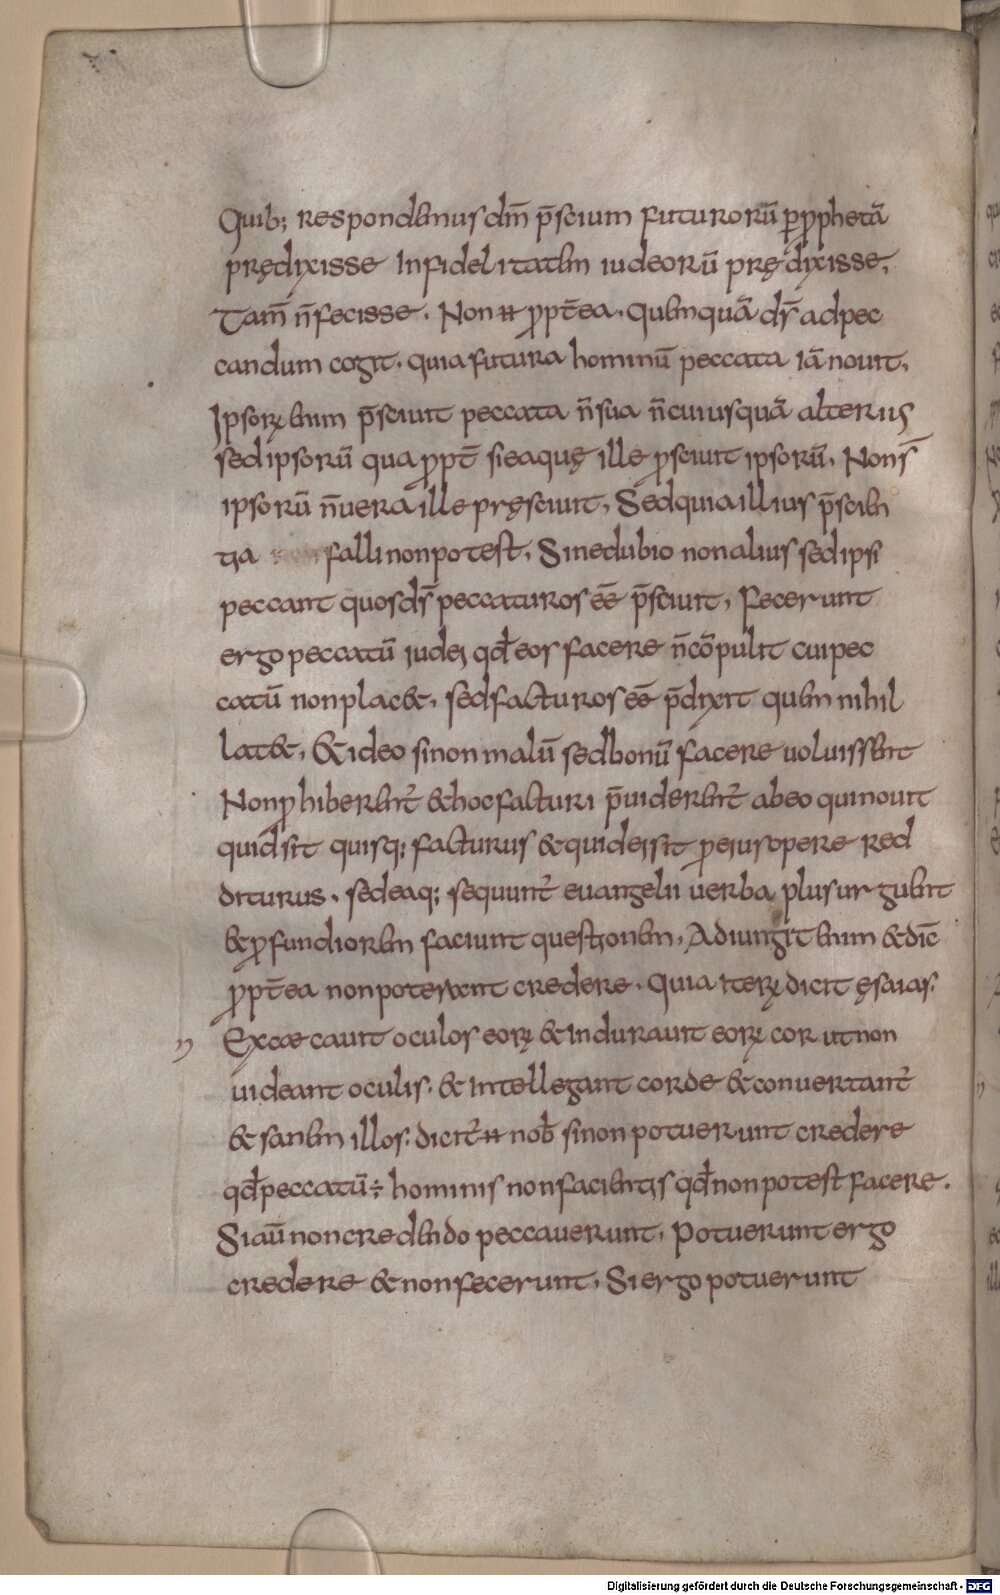 Quib; respondemus dm̄ p̄scium futurorū ꝑ ꝓphetā
prędixisse Infidelitatem iudeorū prędixisse,
Tam̄ n̄ fecisse. Non ħ ꝓpt̄ea. quemquā dr̄ adpec
candum cogit. quia futura hominū peccata iā nouit,
Ipsorꝝ enim p̄sciuit peccata n̄ sua n̄ cuiusquā alterius
sed ipsorū qua ꝓpt̄ si ea quę ille ꝓsciuit ipsorū, Non s̄
ipsorū n̄ uera ille pręsciuit, Sed quia illius p̄scien
tia falli non potest, Sine dubio non alius sed ipsi
peccant quos ds̄ peccaturos eē p̄sciuit, Fecerunt
ergo peccatū iudei qđ eos facere n̄ cōpulit cui pec
catū non placet, sed facturos eē p̄dixit quem nihil
latet, & ideo si non malū sed bonū facere uoluissent
Non ꝓhiberent̄ & hoc facturi p̄uiderent̄ ab eo qui nouit
quid sit quisq; facturus & quid ei sit ꝓ eius opere red
diturus. sed ea q; sequunt̄ euangelii uerba plus urgent
& ꝓfundiorem faciunt questionem, Adiungit enim & dic̄
ꝓpt̄ea non poterant credere. Quia iterꝝ dicit ęsaias.
Excæcauit oculos eorꝝ & Indurauit eorꝝ cor ut non
uideant oculis. & Intellegant corde & conuertant̄
& sanem illos. dicit̄ ħ nob̄ si non potuerunt credere
qđ peccatū ÷ hominis non facientis qđ non potest facere.
Si aū non credendo peccauerunt, Potuerunt ergo
credere & non fecerunt, Si ergo potuerunt
Digitalisierung gefördert durch die Deutsche Forschungsgemeinschaft - DFG